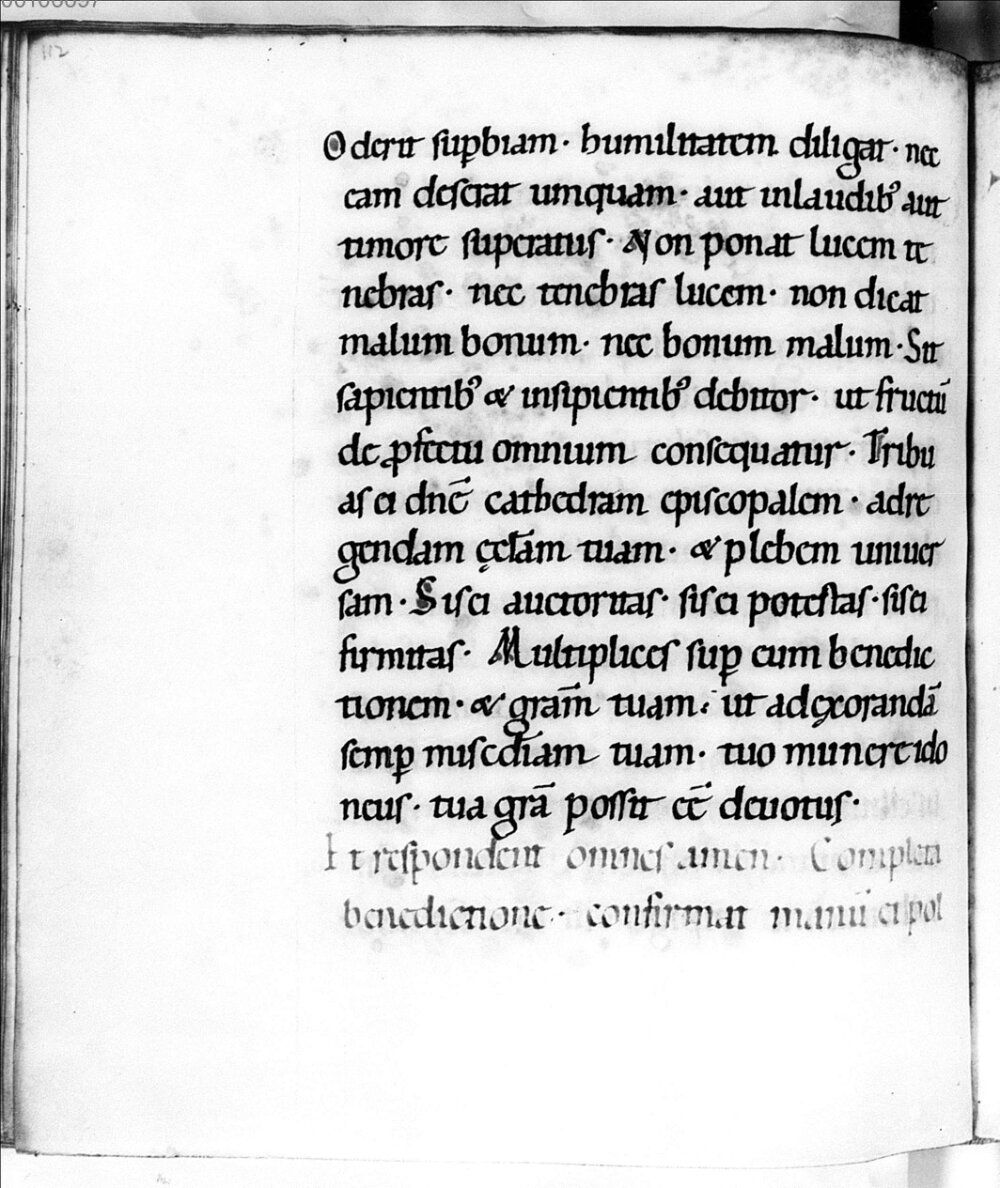 112
Oderit suꝑbiam· humilitatem diligat· nec
eam deserat umquam· aut inlaudibꝰ aut
timore superatus· Non ponat lucem te
nebras· nec tenebras lucem· non dicat
malum bonum· nec bonum malum· Sit
sapientibꝰ & insipientibꝰ debitor· ut fructū
de ꝓfectu omnium consequatur· Tribu
as ei dn̄e cathedram episcopalem· adre
gendam ęccl̄am tuam· & plebem uniuer
sam· Sis ei auctoritas· sis ei potestas· sis ei
firmitas· Multiplices suꝑ eum benedic
tionem· & gr̄am tuam· ut ad exorandā
semꝑ misc̄diam tuam· tuo munere ido
neus· tua gr̄a possit ee̅ deuotus·
Et respondent omnes amen· Completa
benedictione· confirmat manū ei pol